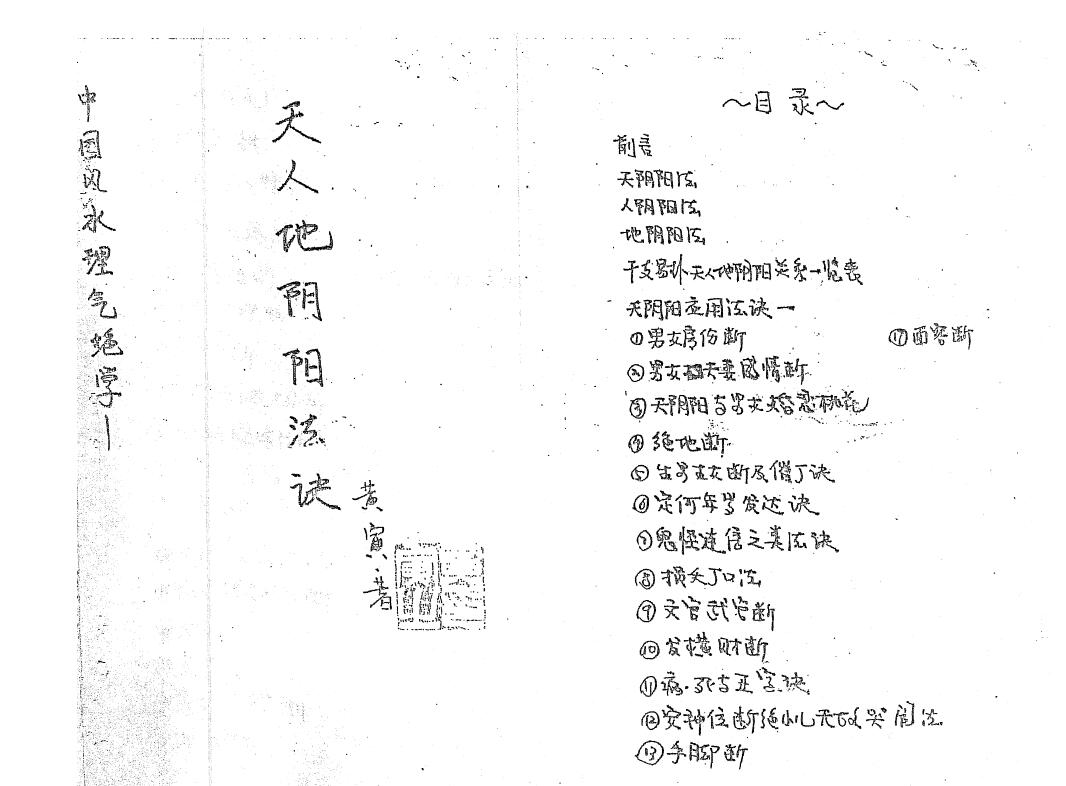 中国风水理气绝学一
天人地阴阳法诀
黄寅著
～目录～
前言
天阴阳法
人阴阳法
地阴阳法
干支易卦天人地阴阳关系一览表
天阴阳应用法诀一
①男女房份断
⑰面容断
②男女夫妻感情断
③天阴阳与男女婚恋桃花
④绝地断
⑤生男生女断及催丁诀
⑥定何年岁发达诀
⑦鬼怪迷信之类法诀
⑧损女丁口法
⑨文官武官断
⑩发横财断
⑪病.死与
⑫安神位断绝小儿天夜哭闹法
⑬手脚断